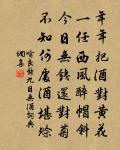 年年把酒對黃花
一任西風醉帽斜
今日無錢還對菊
不知何處酒堪賒
喻良能詩九日無酒詞典
網